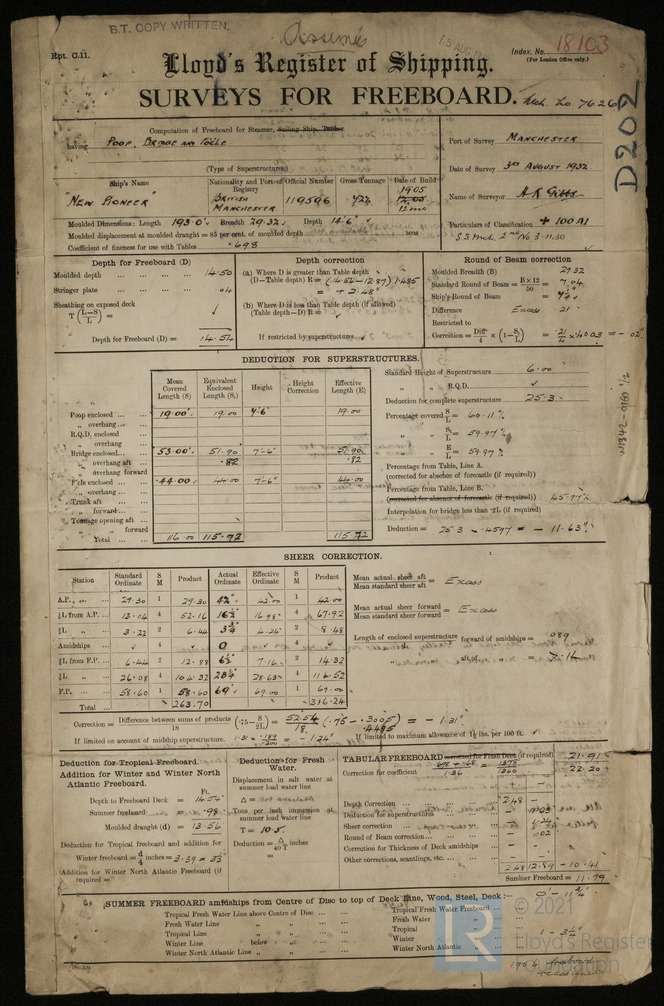 B.T. COPY WRITTEN.
Assumed
15 AUG
Rpt. C.11.
Index. No. 18103
(For London Office only.)
Lloyd's Register of Shipping.
SURVEYS FOR FREEBOARD.
Mch. Lo 7626
D202
Computation of Freeboard for Steamer, Sailing Ship, Tanker
having Poop, Bridge and Focle
(Type of Superstructures.)
Port of Survey MANCHESTER
Date of Survey 3RD AUGUST 1932
Name of Surveyor A R Gibbs
Particulars of Classification + 100 A1
S.S. Mch. 2nd No 3-11.30
Ship's Name Nationality and Port of Registry Official Number Gross Tonnage Date of Build
"NEW PIONEER" BRITISH MANCHESTER 119596 422 1905
12 mo
Moulded Dimensions: Length 193.0 Breadth 29.32 Depth 14.6
Moulded displacement at moulded draught = 85 per cent. of moulded depth tons
Coefficient of fineness for use with Tables .698
Depth for Freeboard (D)
Moulded depth ... 14.50
Stringer plate ... .04
Sheathing on exposed deck
T (L−S / L) =
Depth for Freeboard (D) = 14.54
Depth correction
(a) Where D is greater than Table depth
(D−Table depth) R = (14.54−12.87) 1.485
= + 2.48"
(b) Where D is less than Table depth (if allowed)
(Table depth−D) R =
If restricted by superstructures
Round of Beam correction
Moulded Breadth (B) 29.32
Standard Round of Beam = B×12 / 50 = 7.04
Ship's Round of Beam =
Difference Excess .21
Restricted to
Correction = Diff / 4 × (1−S₁/L) = .21/4 × .4003 = −.02"
DEDUCTION FOR SUPERSTRUCTURES.
Mean Covered Length (S) Equivalent Enclosed Length (S₁) Height Height Correction Effective Length (E)
Poop enclosed ... 19.00 19.00 7'-6" 19.00
„ overhang ...
R.Q.D. enclosed
„ overhang
Bridge enclosed... 53.00 51.90 7'-6" 51.90
„ overhang aft ... .82 .82
„ overhang forward
F'cle enclosed ... 44.00 44.00 7'-6" 44.00
„ overhang ...
Trunk aft ...
„ forward ...
Tonnage opening aft ...
„ forward
Total ... 116.00 115.72 115.72
Standard Height of Superstructure 6.00
„ „ R.Q.D.
Deduction for complete superstructure 25.3
Percentage covered S/L = 60.11%
„ „ S₁/L = 59.97%
„ „ E/L = 59.97%
Percentage from Table, Line A.
(corrected for absence of forecastle (if required))
Percentage from Table, Line B.
(corrected for absence of forecastle (if required)) 45.97%
Interpolation for bridge less than .2L (if required)
Deduction = 25.3 × .4597 = − 11.63"
SHEER CORRECTION.
Station Standard Ordinate S M Product Actual Ordinate Effective Ordinate S M Product
A.P. ... 29.30 1 29.30 42" 42.00 1 42.00
⅙L from A.P. ... 13.04 4 52.16 16.98 4 67.92
⅓L „ ... 3.22 2 6.44 4.24 2 8.48
Amidships ... 4 0 4
⅓L from F.P. ... 6.44 2 12.88 7.16 2 14.32
⅙L „ ... 26.08 4 104.32 28.63 4 114.52
F.P. ... 58.60 1 58.60 69" 69.00 1 69.00
Total ... 263.70 316.24
Mean actual sheer aft / Mean standard sheer aft = Excess
Mean actual sheer forward / Mean standard sheer forward = Excess
Length of enclosed superstructure forward of amidships = .089
„ „ aft of „ =
Correction = Difference between sums of products / 18 (.75−S/2L) = 52.54 / 18 (.75−.3005) = − 1.31"
.4495
If limited on account of midship superstructure. 1.31 × .189/.200 = − 1.24"
If limited to maximum allowance of 1½ ins. per 100 ft.
Deduction for Tropical Freeboard.
Addition for Winter and Winter North Atlantic Freeboard.
Ft.
Depth to Freeboard Deck = 14.54
Summer freeboard = .98
Moulded draught (d) = 13.56
Deduction for Tropical freeboard and addition for
Winter freeboard = d/4 inches = 3.39 =
Addition for Winter North Atlantic Freeboard (if required =
Deduction for Fresh Water.
Displacement in salt water at summer load water line
Δ = not available
Tons per inch immersion at summer load water line
T = 10.5
Deduction = Δ / 40 T inches
=
TABULAR FREEBOARD corrected for Flush Deck (if required) 21.91
Correction for coefficient .698 + .68 / 1.36 = 1378 / 1360 22.20
+ −
Depth Correction ... 2.48 −
Deduction for superstructures ... − 11.63
Sheer correction ... − 1.24
Round of Beam correction ... − .02
Correction for Thickness of Deck amidships ... − −
Other corrections, scantlings, etc. ... − −
2.48 12.89 −10.41
Summer Freeboard = 11.79
SUMMER FREEBOARD amidships from Centre of Disc to top of Deck Line, Wood, Steel, Deck :— 0'-11¾"
Tropical Fresh Water Line above Centre of Disc ...
Fresh Water Line „ „ ...
Tropical Line „ „ ...
Winter Line below „ ...
Winter North Atlantic Line „ „ ...
Tropical Fresh Water Freeboard ...
Fresh Water „ ...
Tropical „ ...
Winter „ ...
Winter North Atlantic „ ...
1906 freeboard
© 2021
LR
Lloyd's Register
Foundation
W1342-0160 1/2